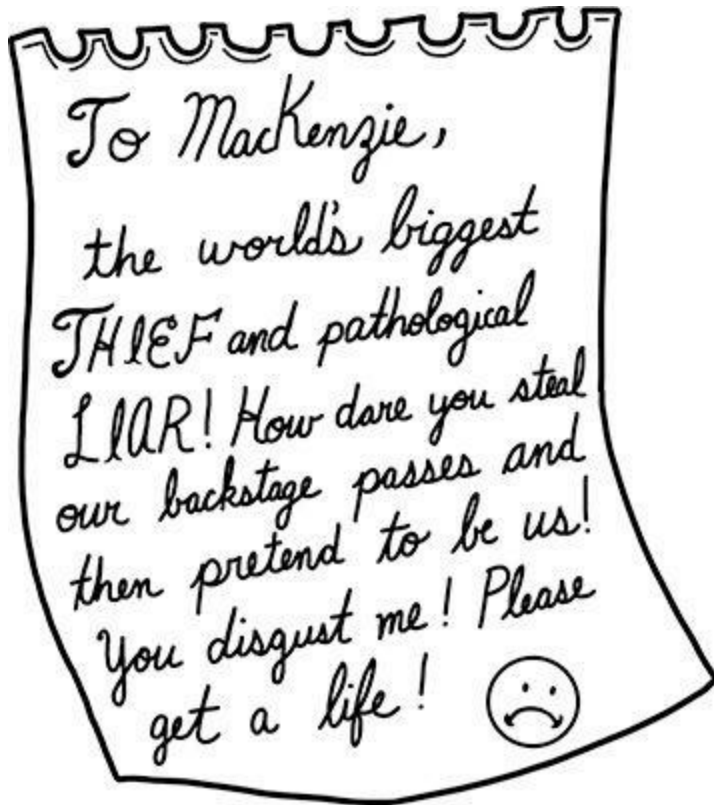 To MacKenzie,
the world's biggest
THIEF and pathological
LIAR! How dare you steal
our backstage passes and
then pretend to be us!
You disgust me! Please
get a life!